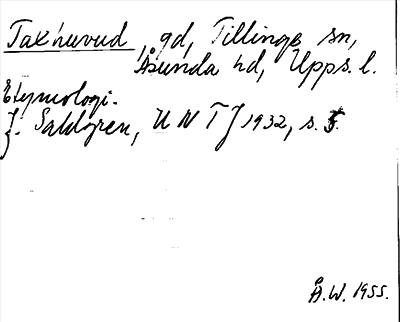 Taxhuvud, gd, Tillinge sn,
Åsunda hd, Upps. l.
Etymologi.
J. Sahlgren, UNTJ 1932, s. 5.
Å.W. 1955.